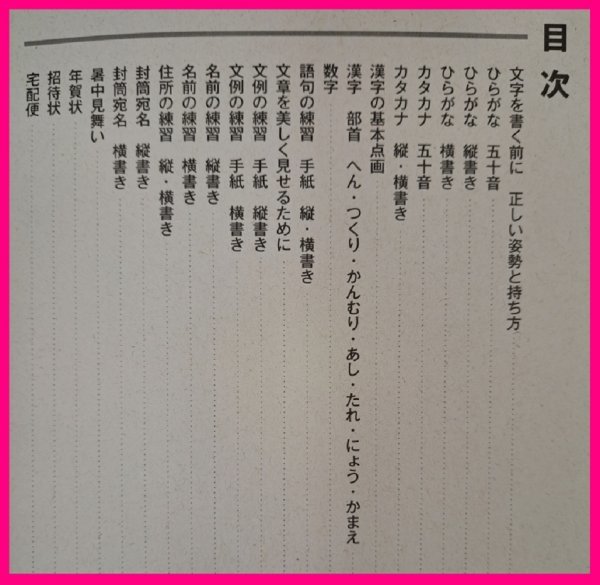 目次
文字を書く前に　正しい姿勢と持ち方
ひらがな　五十音
ひらがな　縦書き
ひらがな　横書き
カタカナ　五十音
カタカナ　縦・横書き
漢字の基本点画
漢字　部首　へん・つくり・かんむり・あし・たれ・にょう・かまえ
数字
語句の練習　手紙　縦・横書き
文章を美しく見せるために
文例の練習　手紙　縦書き
文例の練習　手紙　横書き
名前の練習　縦書き
名前の練習　横書き
住所の練習　縦・横書き
封筒宛名　縦書き
封筒宛名　横書き
暑中見舞い
年賀状
招待状
宅配便